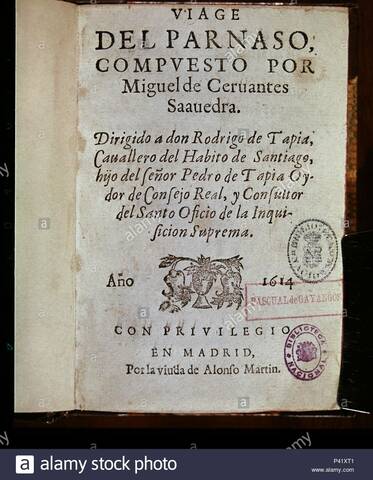 VIAGE
DEL PARNASO,
COMPVESTO POR
Miguel de Ceruantes
Saauedra.
Dirigido a don Rodrigo de Tapia,
Cauallero del Habito de Santiago,
hijo del señor Pedro de Tapia Oy-
dor de Consejo Real, y Consultor
del Santo Oficio de la Inqui-
sicion Suprema.
Año 1614
PASCUAL de GAYANGOS
CON PRIVILEGIO
EN MADRID,
Por la viuda de Alonso Martin.
BIBLIOTECA
NACIONAL
alamy
a alamy stock photo
P41XT1
www.alamy.com